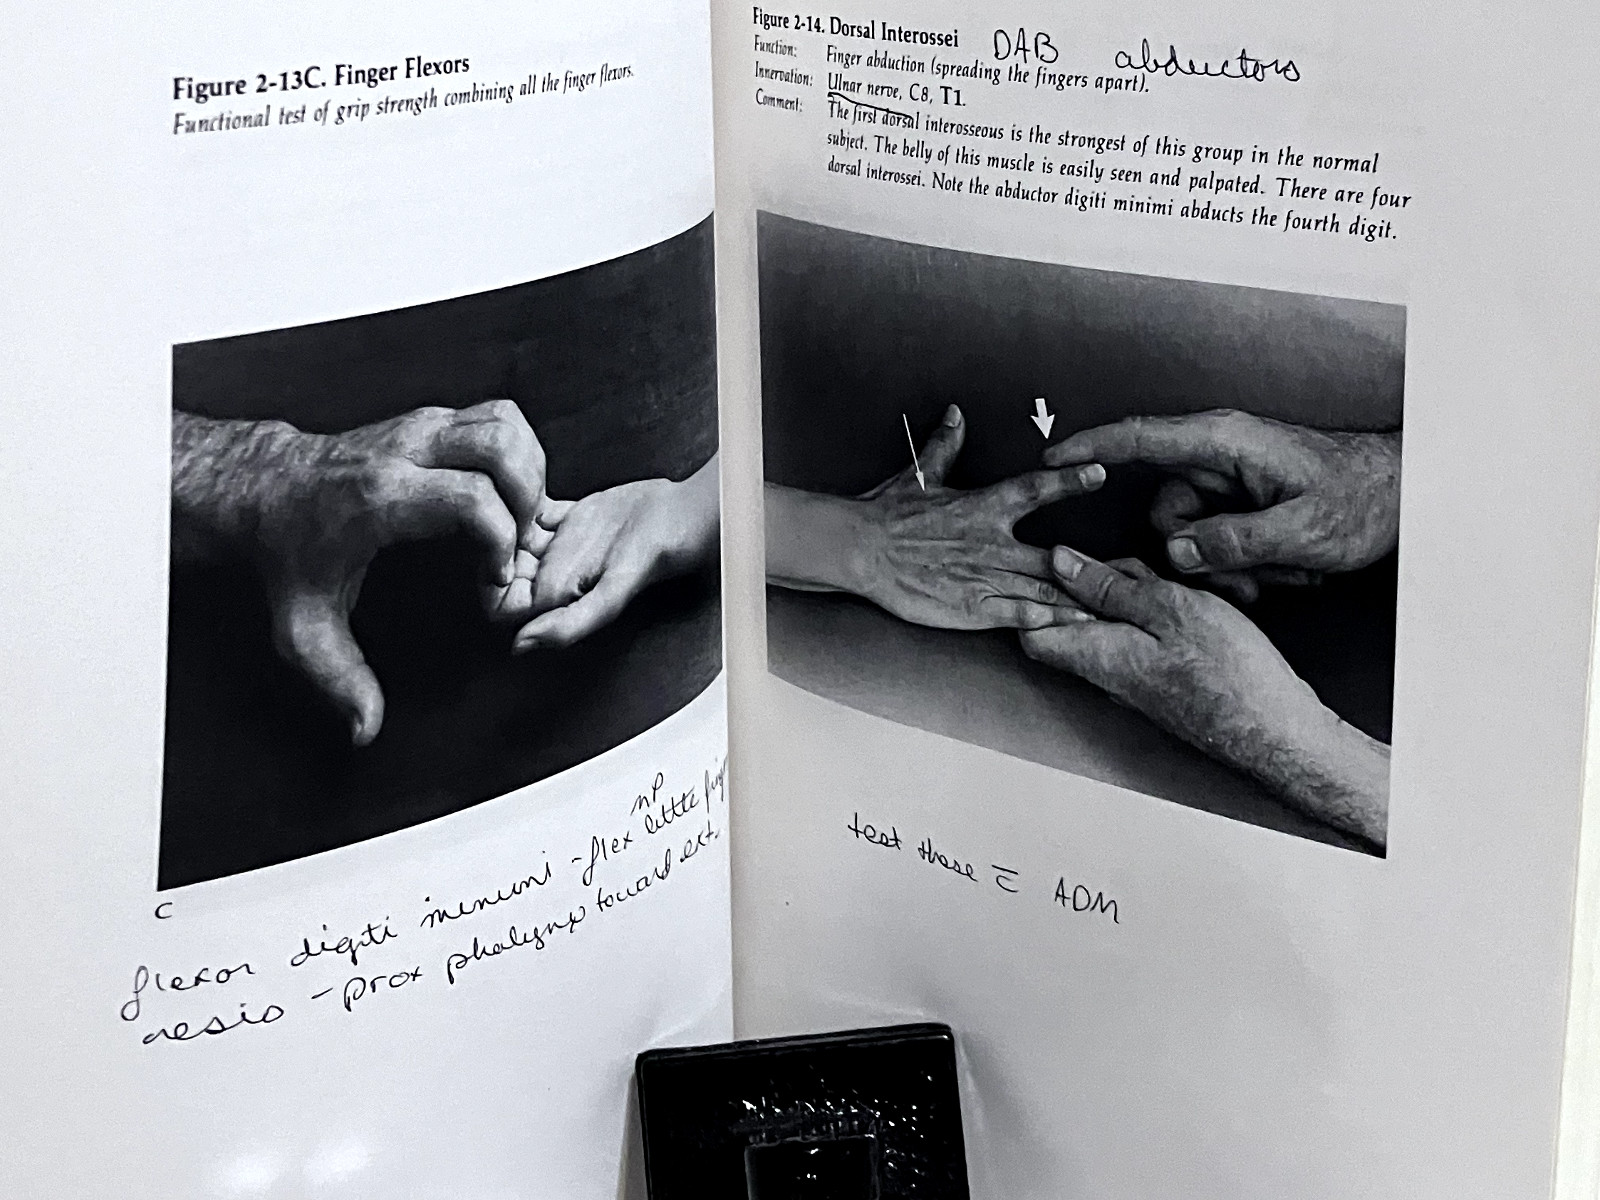 Figure 2-13C. Finger Flexors
Functional test of grip strength combining all the finger flexors.
C
flexor digiti minimi - flex little
resis - prox phalynx toward ext.
Figure 2-14. Dorsal Interossei
DAB abductors
Function: Finger abduction (spreading the fingers apart).
Innervation: Ulnar nerve, C8, T1.
Comment: The first dorsal interosseous is the strongest of this group in the normal
subject. The belly of this muscle is easily seen and palpated. There are four
dorsal interossei. Note the abductor digiti minimi abducts the fourth digit.
test these c̅ ADM